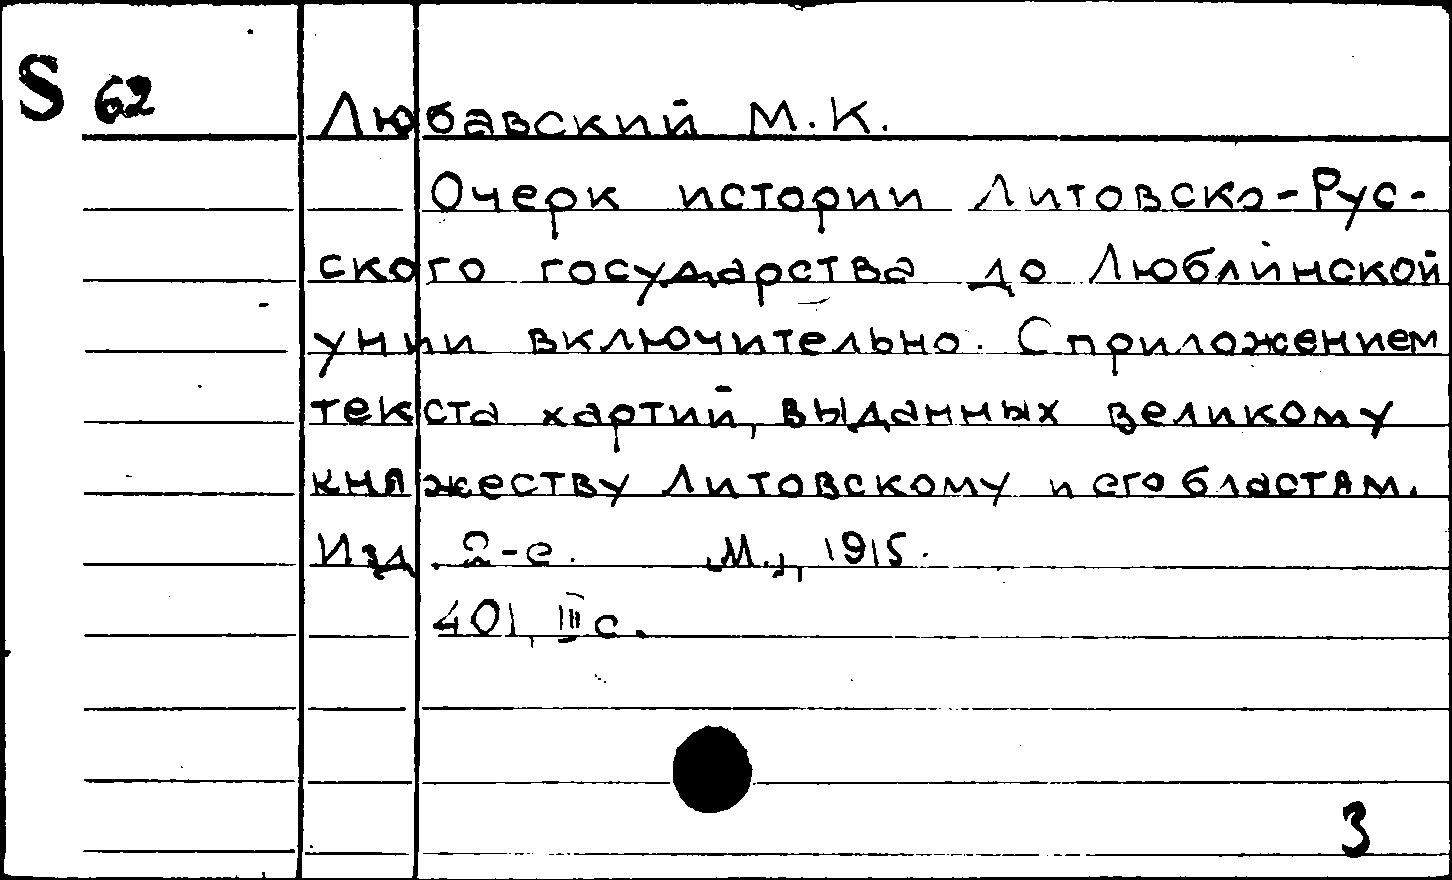 S 62
Любавский М.К.
Очерк истории Литовско-Рус-
ского государства до Люблинской
унии включительно. С приложением
текста хартий, выданных великому
княжеству Литовскому и его бластям.
Изд. 2-е. М., 1915.
401, III с.
3